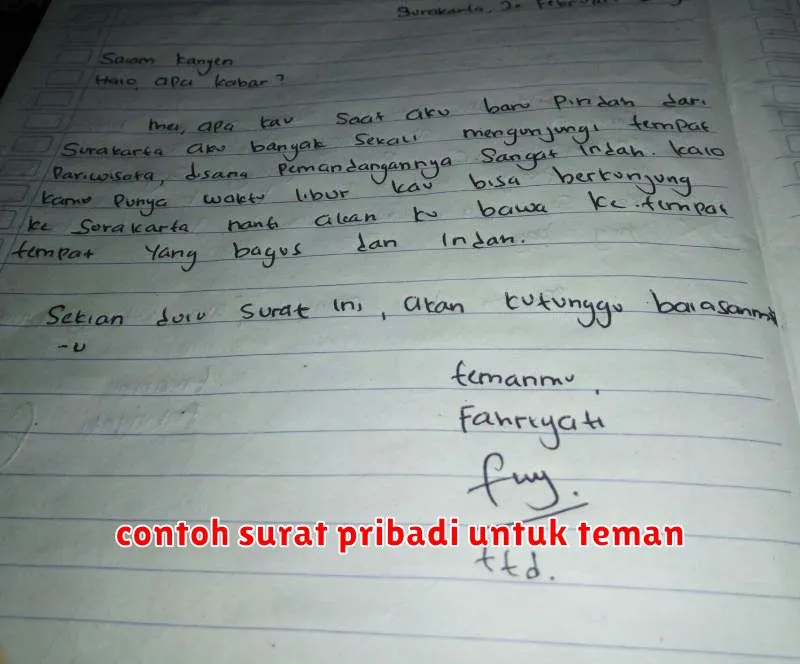 Surakarta, 20 Februari
Salam kangen
Halo, apa kabar?
mei, apa kau saat aku baru Pindah dari
Surakarta aku banyak sekali mengunjungi tempat
Pariwisata, disana Pemandangannya Sangat indah. Kalo
kamu Punya waktu libur kau bisa berkunjung
ke Surakarta nanti akan ku bawa ke tempat
tempat yang bagus dan indah.
Sekian dulu surat ini, akan kutunggu balasanm
-u
temanmu,
Fahriyati
contoh surat pribadi untuk teman
ttd.